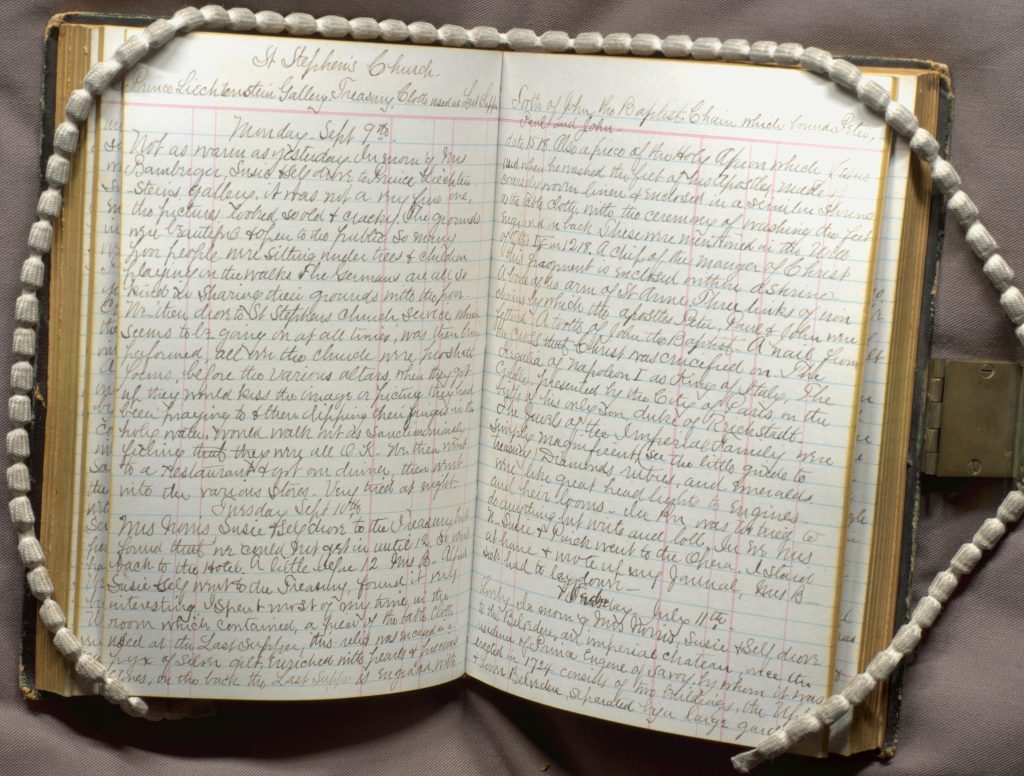 St Stephen's Church
Prince Liechtenstein Gallery Treasury Cloth used at Last Supper
Monday. Sept 9th.
Not as warm as yesterday. In morng Mrs
Bambriger, Susie & Self drove to Prince Liechten-
steins Gallery. it was not a very fine one,
the pictures looked so old & cracked. The grounds
were beautiful & open to the public. So many
poor people were sitting under trees & children
playing in the walks & the Germans are all so
kind in sharing their grounds with the poor.
We then drove to St Stephens church service which
seems to be going on at all times, was then being
performed, all over the church were prostrate
forms, before the various altars. when they got
up they would kiss the image or picture they had
been praying to & then dipping their fingers in the
holy water, would walk out as sanctimoniously
feeling that they were all O.K. We then went
to a Restaurant & got our dinner, then went
into the various stores. Very tired at night
Tuesday Sept 10th
Mrs Norris Susie & Self drove to the Treasury but
found that we could not get in until 12. So went
back to the Hotel. A little before 12 Mrs B.
Susie & Self went to the Treasury, found it very
interesting. I spent most of my time in the
room which contained, a piece of the table cloth
used at the Last Supper, this relic was encased in a
pyx of silver gilt, enriched with pearls & precious
stones, on the back the Last Supper is engraved, with
Tooth of John the Baptist. Chain which bound Peter,
Paul and John
date 1518. Also a piece of the Holy Apron which Jesus
used when he washed the feet of his Apostles, made of
coarsely woven linen & enclosed in a similar shrine
as the table cloth, with the ceremony of washing the feet
engraved on back. These were mentioned in the Will
of Otto IV in 1218. A chip of the manger of Christ
this fragment is enclosed within a shrine
A bone of the arm of St Anne. Three links of iron
chains by which the apostles Peter, Paul & John were
fettered. A tooth of John the Baptist. A nail from
the cross that Christ was crucified on. The
Regalia of Napoleon I as King of Italy. The
Cradle, presented by the City of Paris on the
birth of his only Son, duke of Reichstadt.
The Jewels of the Imperial Family were
simply magnificent, see the little guide to
treasury, Diamonds, rubies, and Emeralds
were like great head lights to Engines
and heir looms. In Pm was too tired to
do anything but write and loll. In eve Mrs
N. Susie & Puck went to the Opera. I staid
at home & wrote up my Journal. Mrs B
sick had to lay down.
Wednesday July 11th
Lovely. In morng Mrs Norris, Susie & Self drove
to the Belvedere, an imperial chateau, once the
residence of Prince Eugene of Savoy, by whom it was
erected in 1724 consists of two buildings, the Upper
& Lower Belvedere separated by a large garden